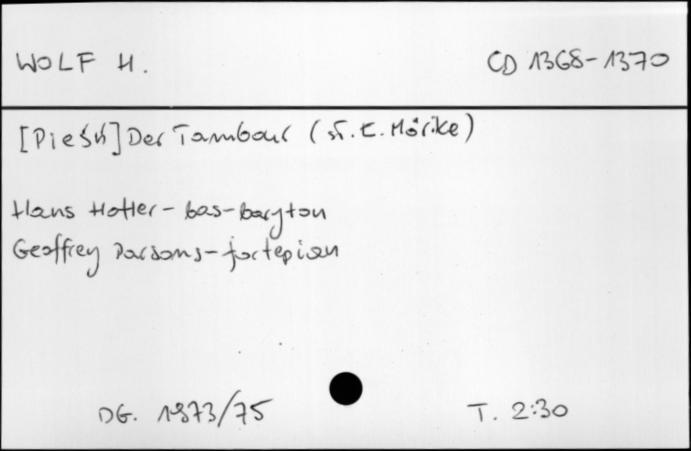 WOLF H. CD 1368-1370
[Pieśń] Der Tambour (sł. E. Mörike)
Hans Hotter - bas-baryton
Geoffrey Parsons - fortepian
DG. 1973/75 T. 2:30